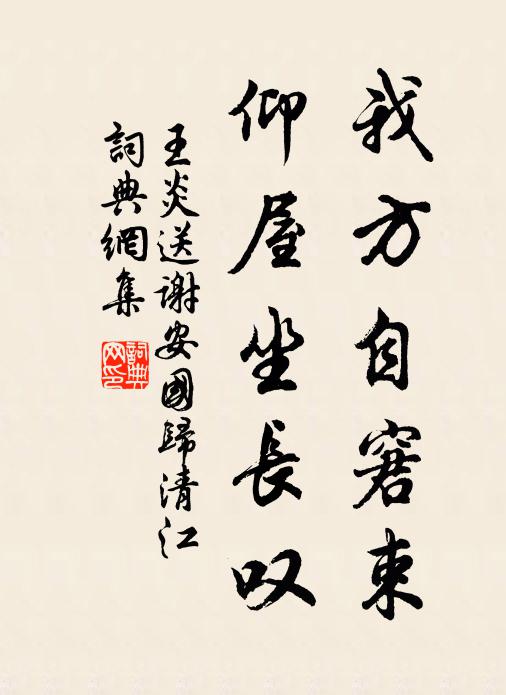 我方自窘束
仰屋坐長叹
王炎送谢安國歸清江
詞典網集
詞典網印